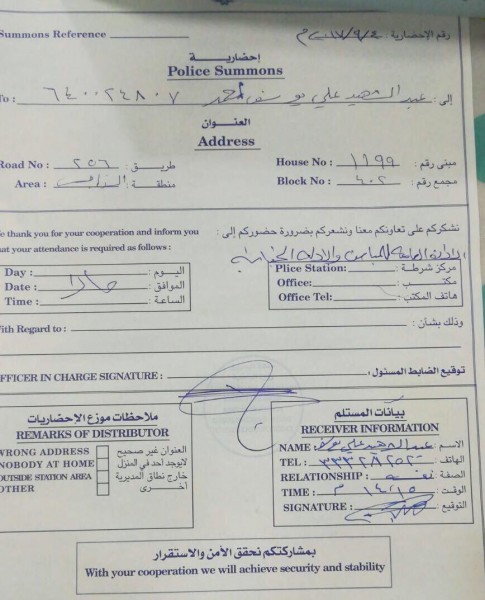 Summons Reference رقم الإحضارية :
إحضارية
Police Summons
To : ٦٤٠٠٢٤٨٠٧ علي محمد إلى :
العنوان
Address
Road No : ٢٥٦ طريق : House No : ١١٩٩ مبنى رقم :
Area : منطقة : Block No : ٤٠٢ مجمع رقم :
نشكركم على تعاونكم معنا ونشعركم بضرورة حضوركم إلى :
We thank you for your cooperation and inform you
that your attendance is required as follows :
الإدارة العامة للمباحث والأدلة الجنائية
Day : اليوم : Plice Station: مركز شرطة :
Date : الموافق : Office: مكتب :
Time : الساعة : Office Tel: هاتف المكتب :
With Regard to : وذلك بشأن :
OFFICER IN CHARGE SIGNATURE : توقيع الضابط المسئول :
ملاحظات موزع الإحضاريات
REMARKS OF DISTRIBUTOR
WRONG ADDRESS العنوان غير صحيح
NOBODY AT HOME لايوجد أحد في المنزل
OUTSIDE STATION AREA خارج نطاق المديرية
OTHER أخرى
بيانات المستلم
RECEIVER INFORMATION
NAME : علي الاسم
TEL : الهاتف :
RELATIONSHIP : نفسه الصفة :
TIME : ١٤/١٥ م الوقت :
SIGNATURE : التوقيع
بمشاركتكم نحقق الأمن والاستقرار
With your cooperation we will achieve security and stability